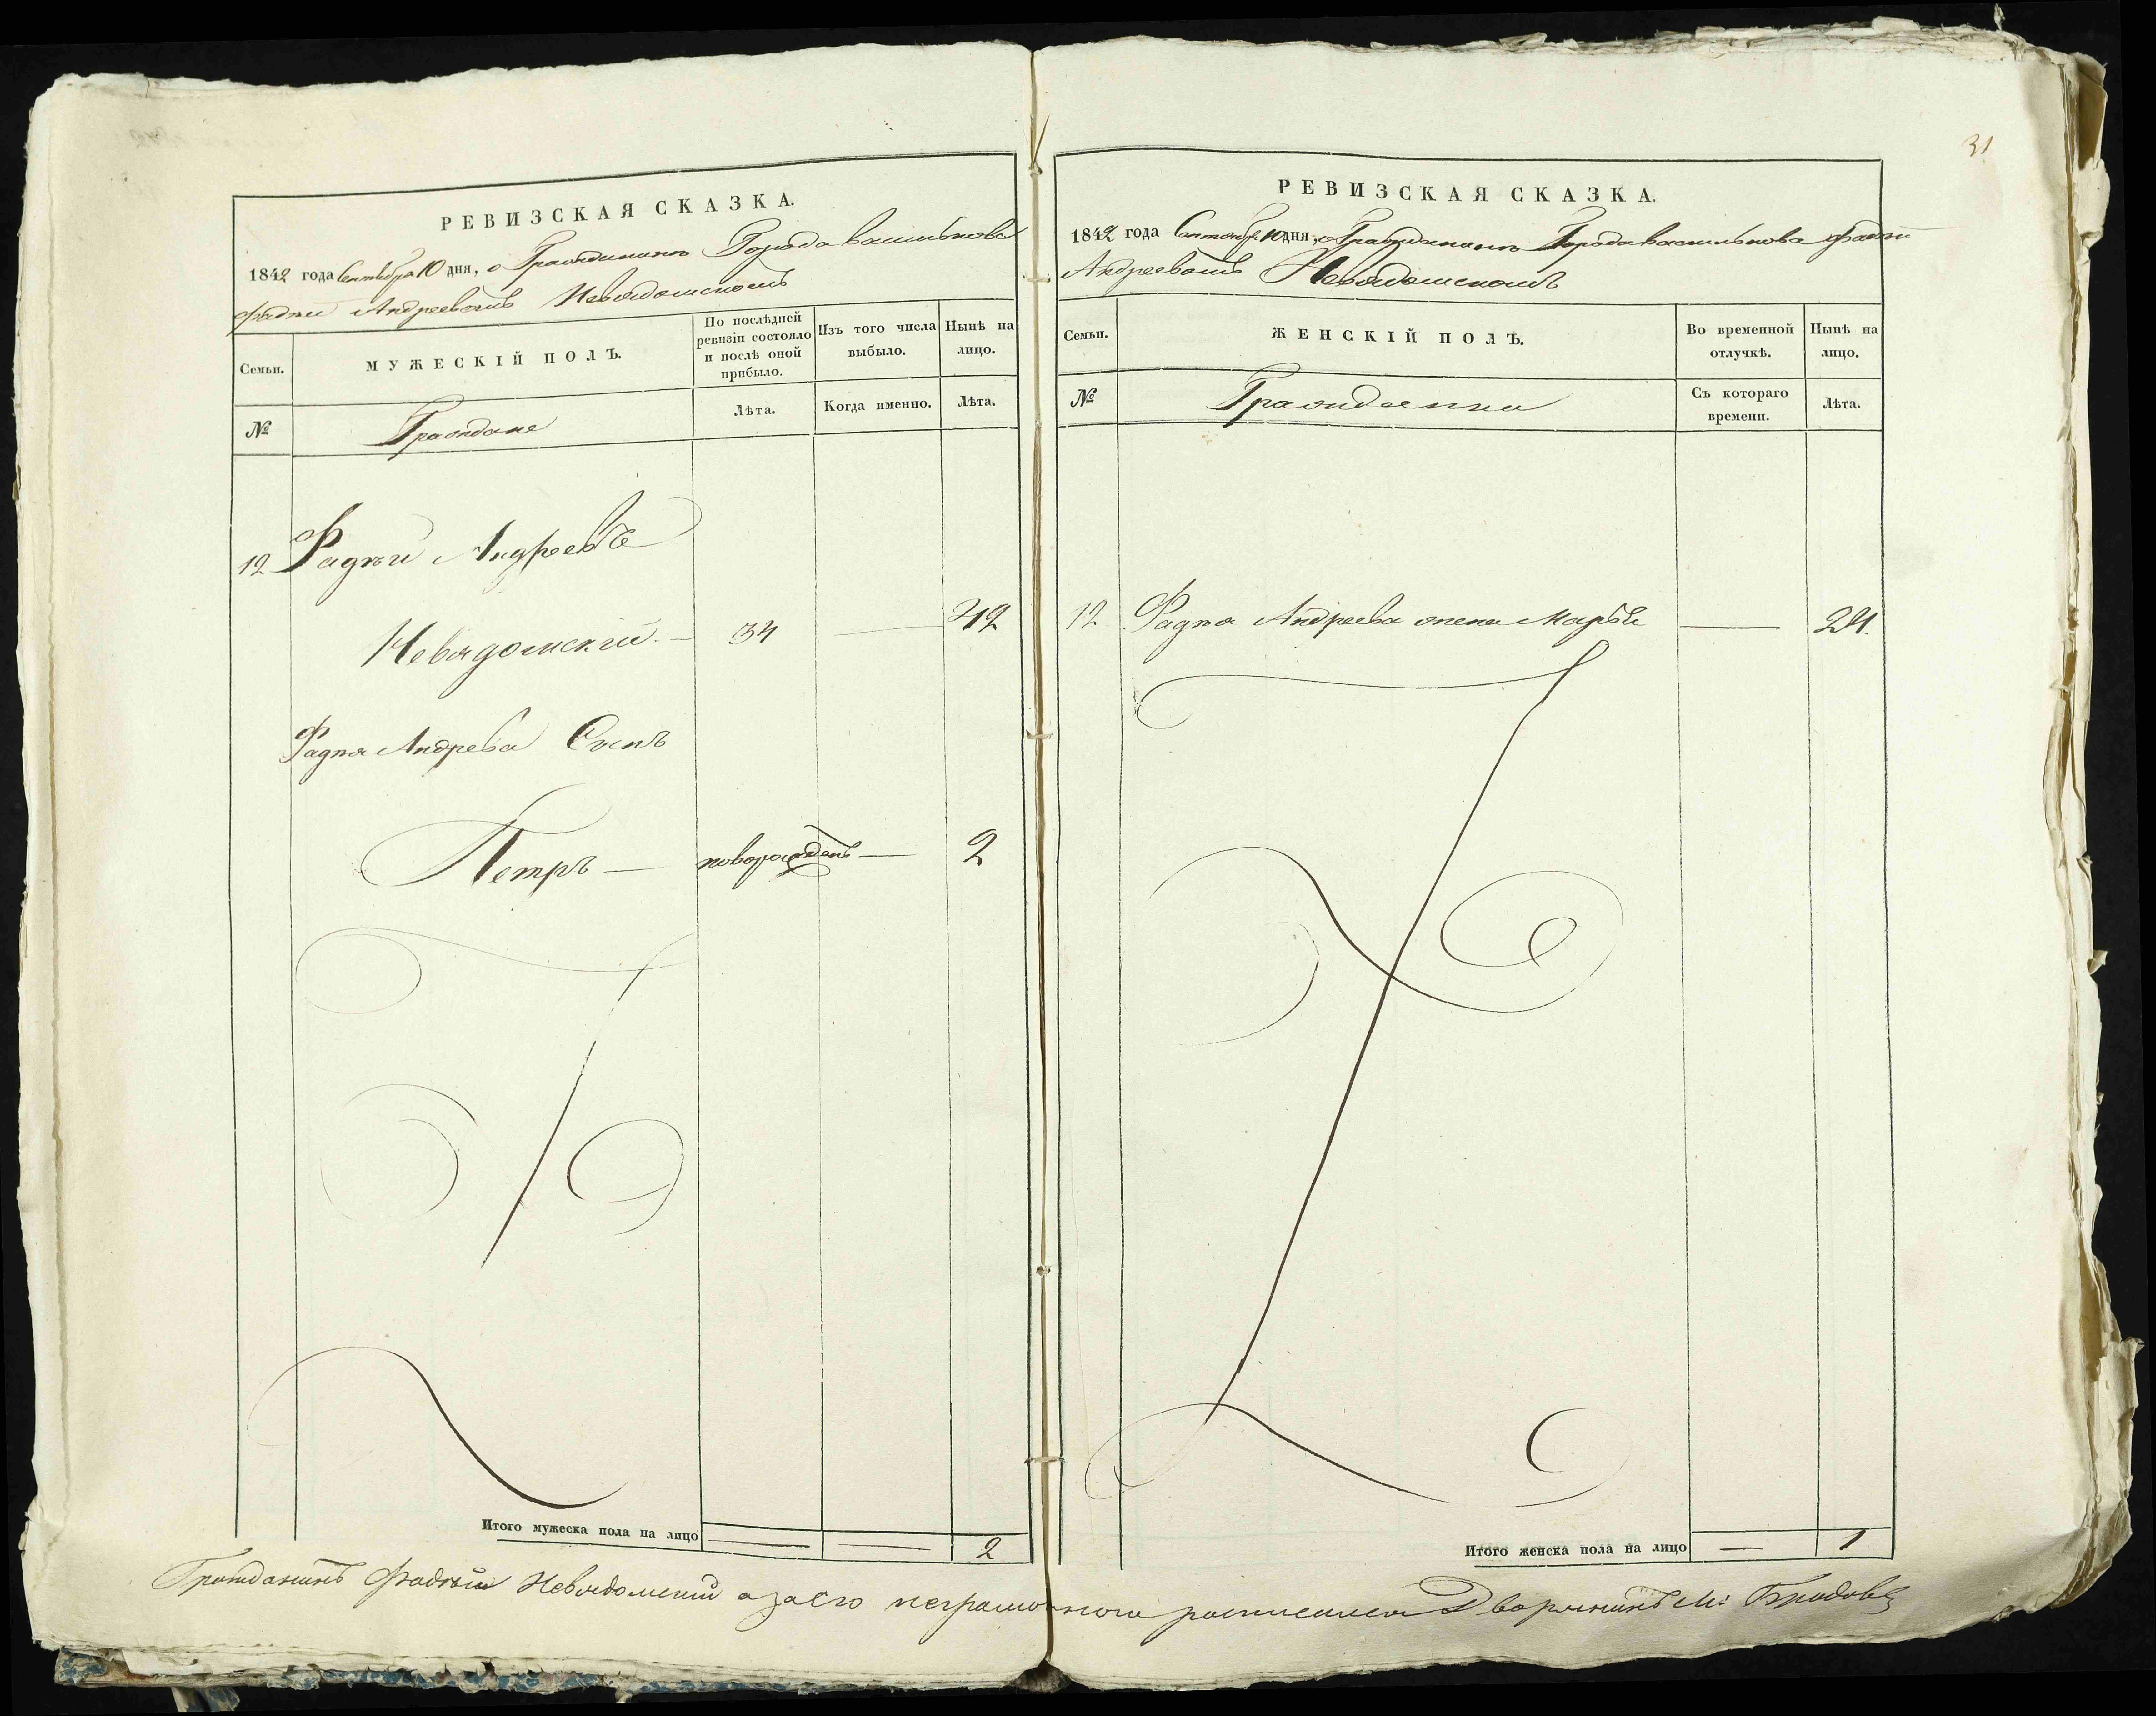 31
РЕВИЗСКАЯ СКАЗКА.
1842 года Сентября 10 дня, о Гражданинѣ Города Василькова
Фадѣи Андреевомъ Невядомскомъ
Семьи.
МУЖЕСКІЙ ПОЛЪ.
По послѣдней ревизіи состояло и послѣ оной прибыло.
Изъ того числа выбыло.
Нынѣ на лицо.
№
Граждане
Лѣта.
Когда именно.
Лѣта.
12 Фадѣи Андреевъ
Невядомскій. — 34 — 42
Фадѣя Андрева Сынъ
Петръ — новорожденъ — 2
Итого мужеска пола на лицо — — 2
РЕВИЗСКАЯ СКАЗКА.
1842 года Сентября 10 дня, о Гражданинѣ Города Василькова Фадѣи
Андреевомъ Невядомскомъ
Семьи.
ЖЕНСКІЙ ПОЛЪ.
Во временной отлучкѣ.
Нынѣ на лицо.
№
Гражданки
Съ котораго времени.
Лѣта.
12 Фадѣя Андреева жена Марья — 24.
Итого женска пола на лицо — 1
Гражданинъ Фадѣй Невядомский а за его неграмотного росписался Дворянинъ М: